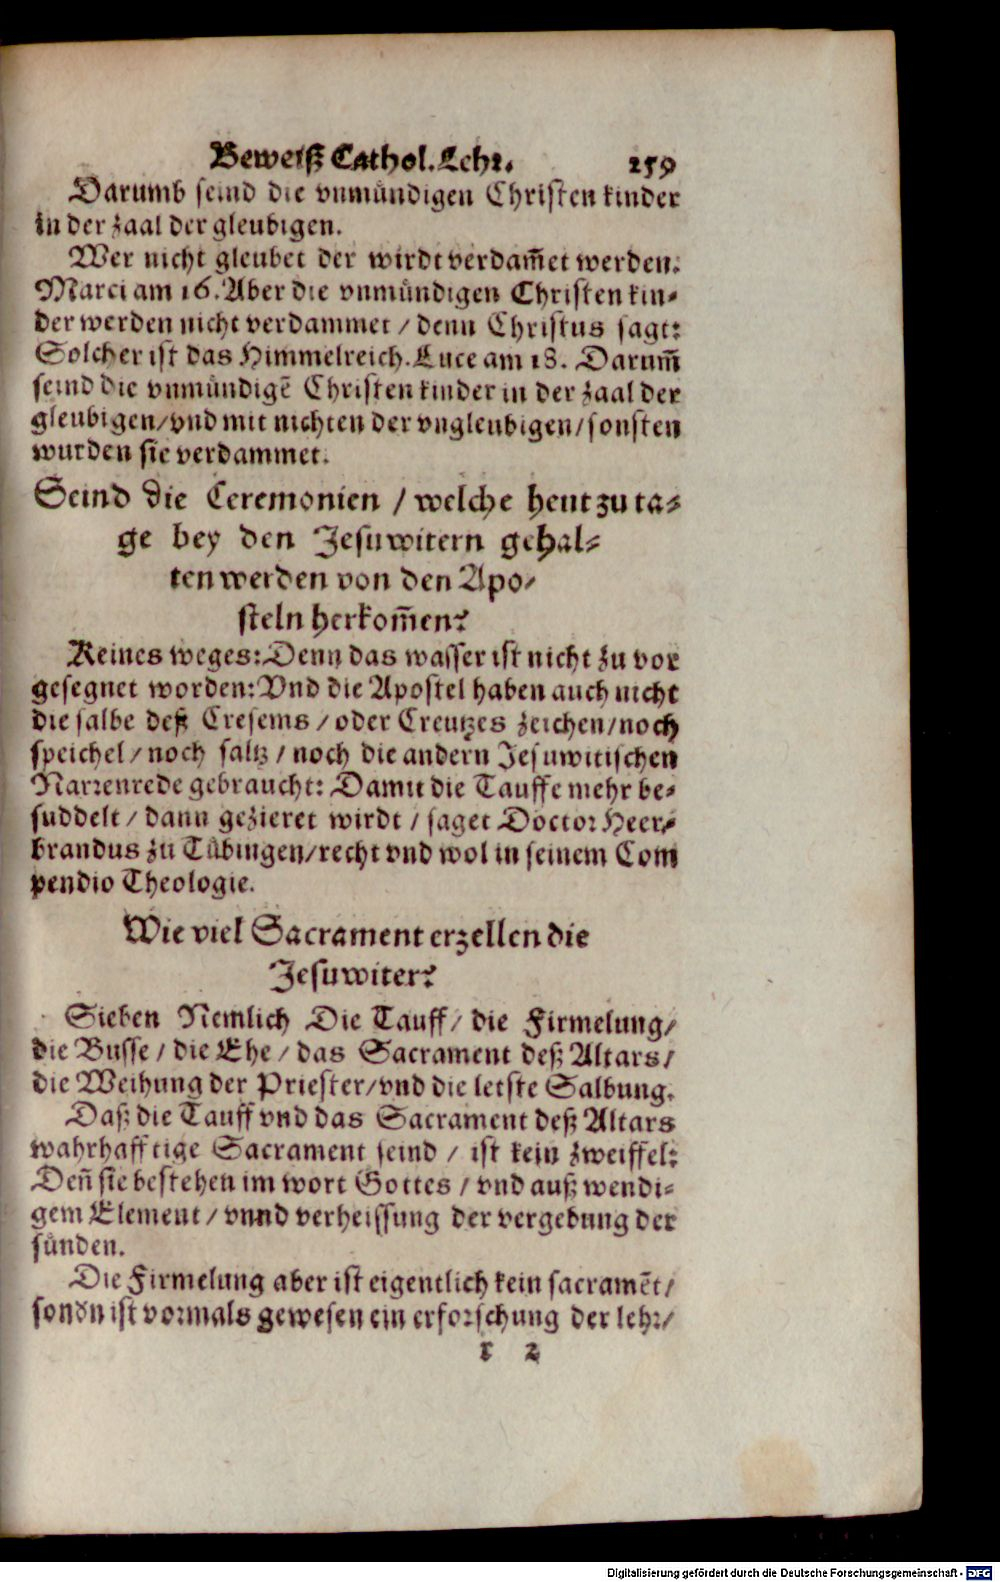 Beweiß Cathol. Lehr. 159
Darumb seind die vnmündigen Christen kinder
in der zaal der gleubigen.
Wer nicht gleubet der wirdt verdam̃et werden.
Marci am 16. Aber die vnmündigen Christen kin-
der werden nicht verdammet / denn Christus sagt:
Solcher ist das Himmelreich. Luce am 18. Darum̃
seind die vnmündigẽ Christen kinder in der zaal der
gleubigen/vnd mit nichten der vngleubigen/sonsten
wurden sie verdammet.
Seind die Ceremonien / welche heut zu ta-
ge bey den Jesuwitern gehal-
ten werden von den Apo-
steln herkom̃en?
Keines weges: Denn das wasser ist nicht zu vor
gesegnet worden: Vnd die Apostel haben auch nicht
die salbe deß Cresems / oder Creutzes zeichen/noch
speichel / noch saltz / noch die andern Jesuwitischen
Narrenrede gebraucht: Damit die Tauffe mehr be-
suddelt / dann gezieret wirdt / saget Doctor Heer-
brandus zu Tübingen/recht vnd wol in seinem Com
pendio Theologie.
Wie viel Sacrament erzellen die
Jesuwiter?
Sieben Nemlich Die Tauff / die Firmelung/
die Busse / die Ehe / das Sacrament deß Altars /
die Weihung der Priester/vnd die letste Salbung.
Daß die Tauff vnd das Sacrament deß Altars
wahrhafftige Sacrament seind / ist kein zweiffel:
Deñ sie bestehen im wort Gottes / vnd außwendi-
gem Element / vnnd verheissung der vergebung der
sünden.
Die Firmelung aber ist eigentlich kein sacramẽt /
sondn ist vormals gewesen ein erforschung der lehr/
r 2
Digitalisierung gefördert durch die Deutsche Forschungsgemeinschaft - DFG